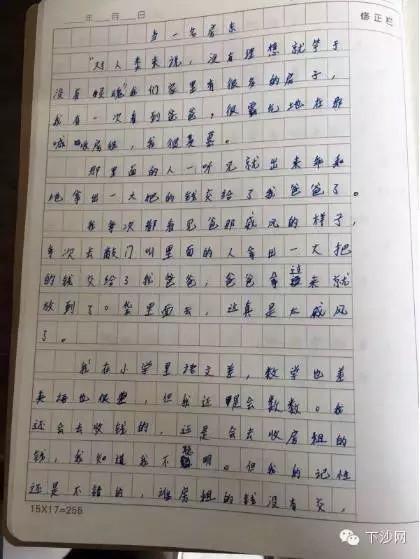 年 月 日
修正栏
当一名房东
"对人类来说，没有理想就等于
没有灵魂"我们家里有很多的房子，
我有一次看到爸爸，很霸气地在那
喊 收房租，我很羡慕。
那里面的人一听见就出来乖乖
地拿出一大把的钱交给了我爸爸了。
我每次都看见爸那威风的样子，
每次去敲门叫里面的人拿出一大把
的钱交给了我爸爸，爸爸拿过来就
放到了 包里面去，这真是太威风
了。
我在小学里语文差，数学也差
英语也很差，但我还是会数数。我
还会去收钱的，还是会去收房租的
钱，我知道我不聪明。但我的记性
还是不错的，谁房租的钱没有交，
15X17=255
下沙网